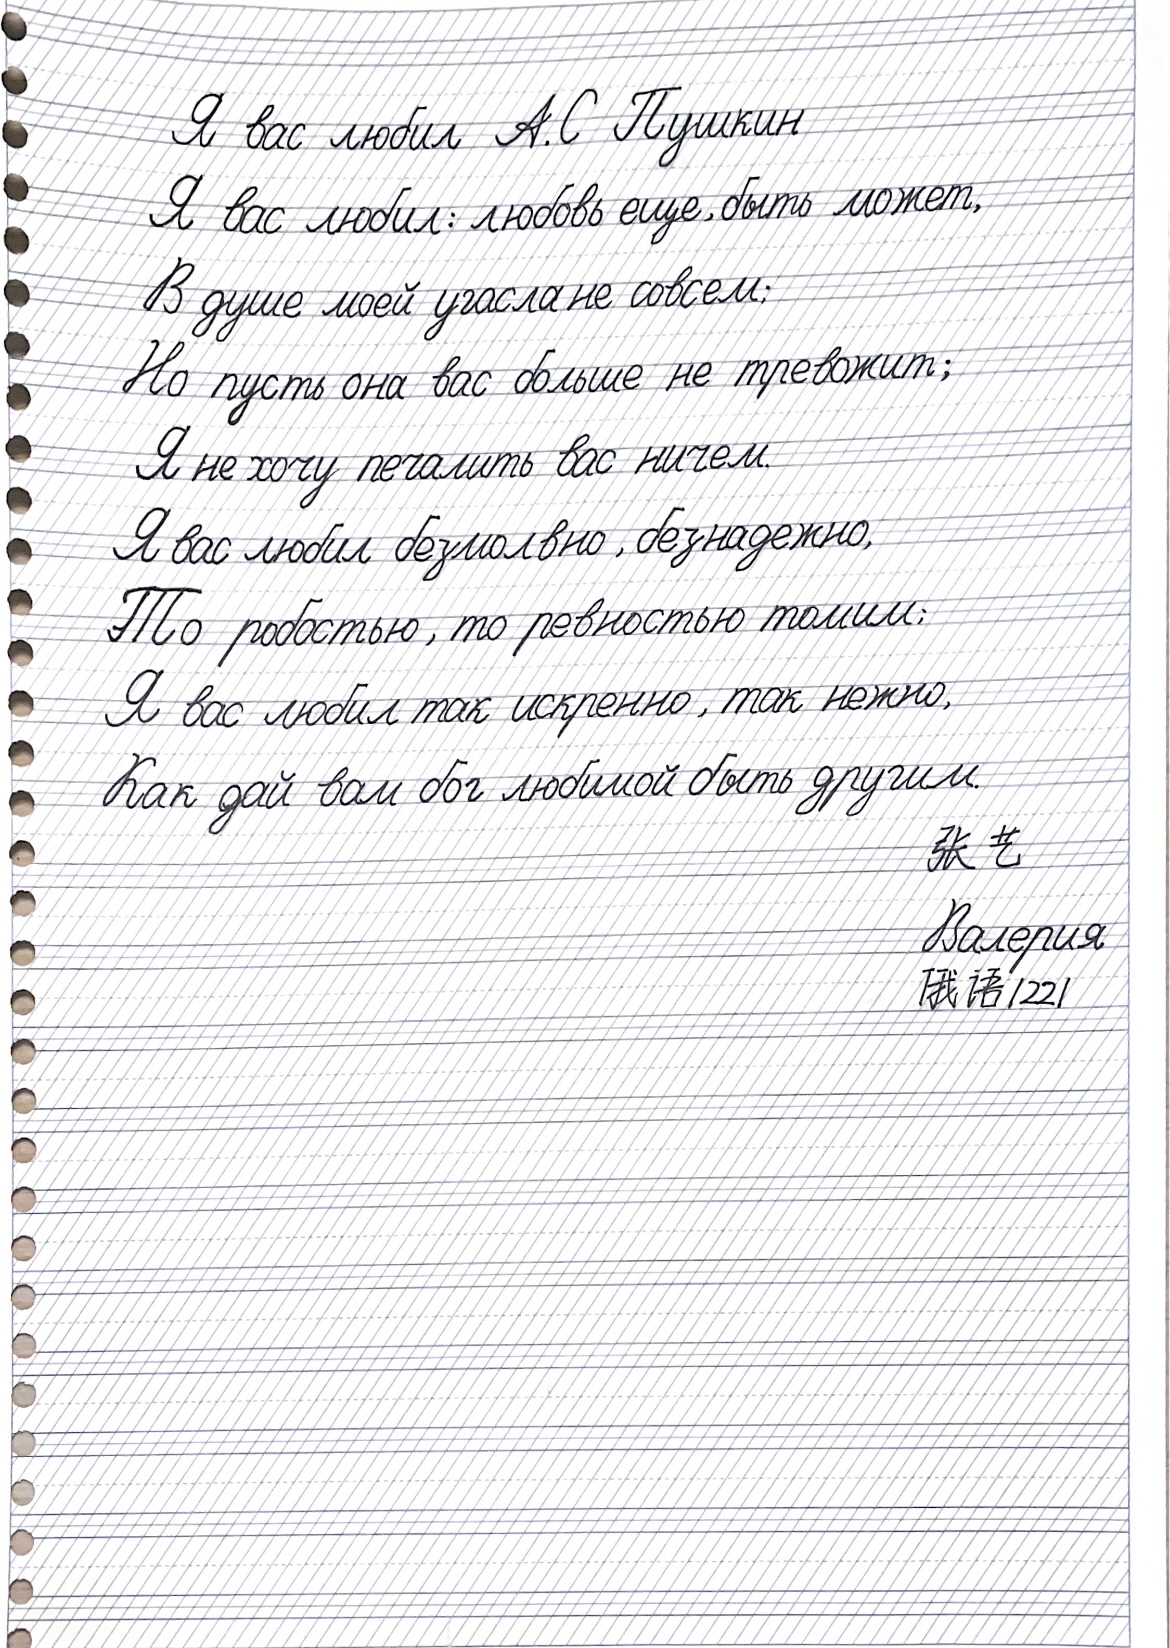 Я вас любил А.С Пушкин
Я вас любил: любовь еще, быть может,
В душе моей угасла не совсем;
Но пусть она вас больше не тревожит;
Я не хочу печалить вас ничем.
Я вас любил безмолвно, безнадежно,
То робостью, то ревностью томим;
Я вас любил так искренно, так нежно,
Как дай вам бог любимой быть другим.
张艺
Валерия
俄语1221